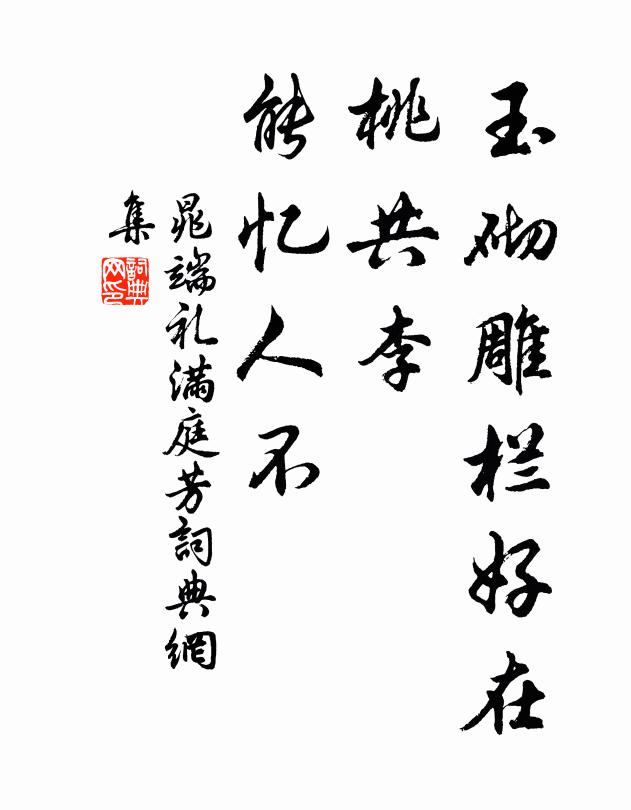 玉砌雕栏好在
桃共李
能忆人不
晁端礼满庭芳詞典網
集
詞典
网印